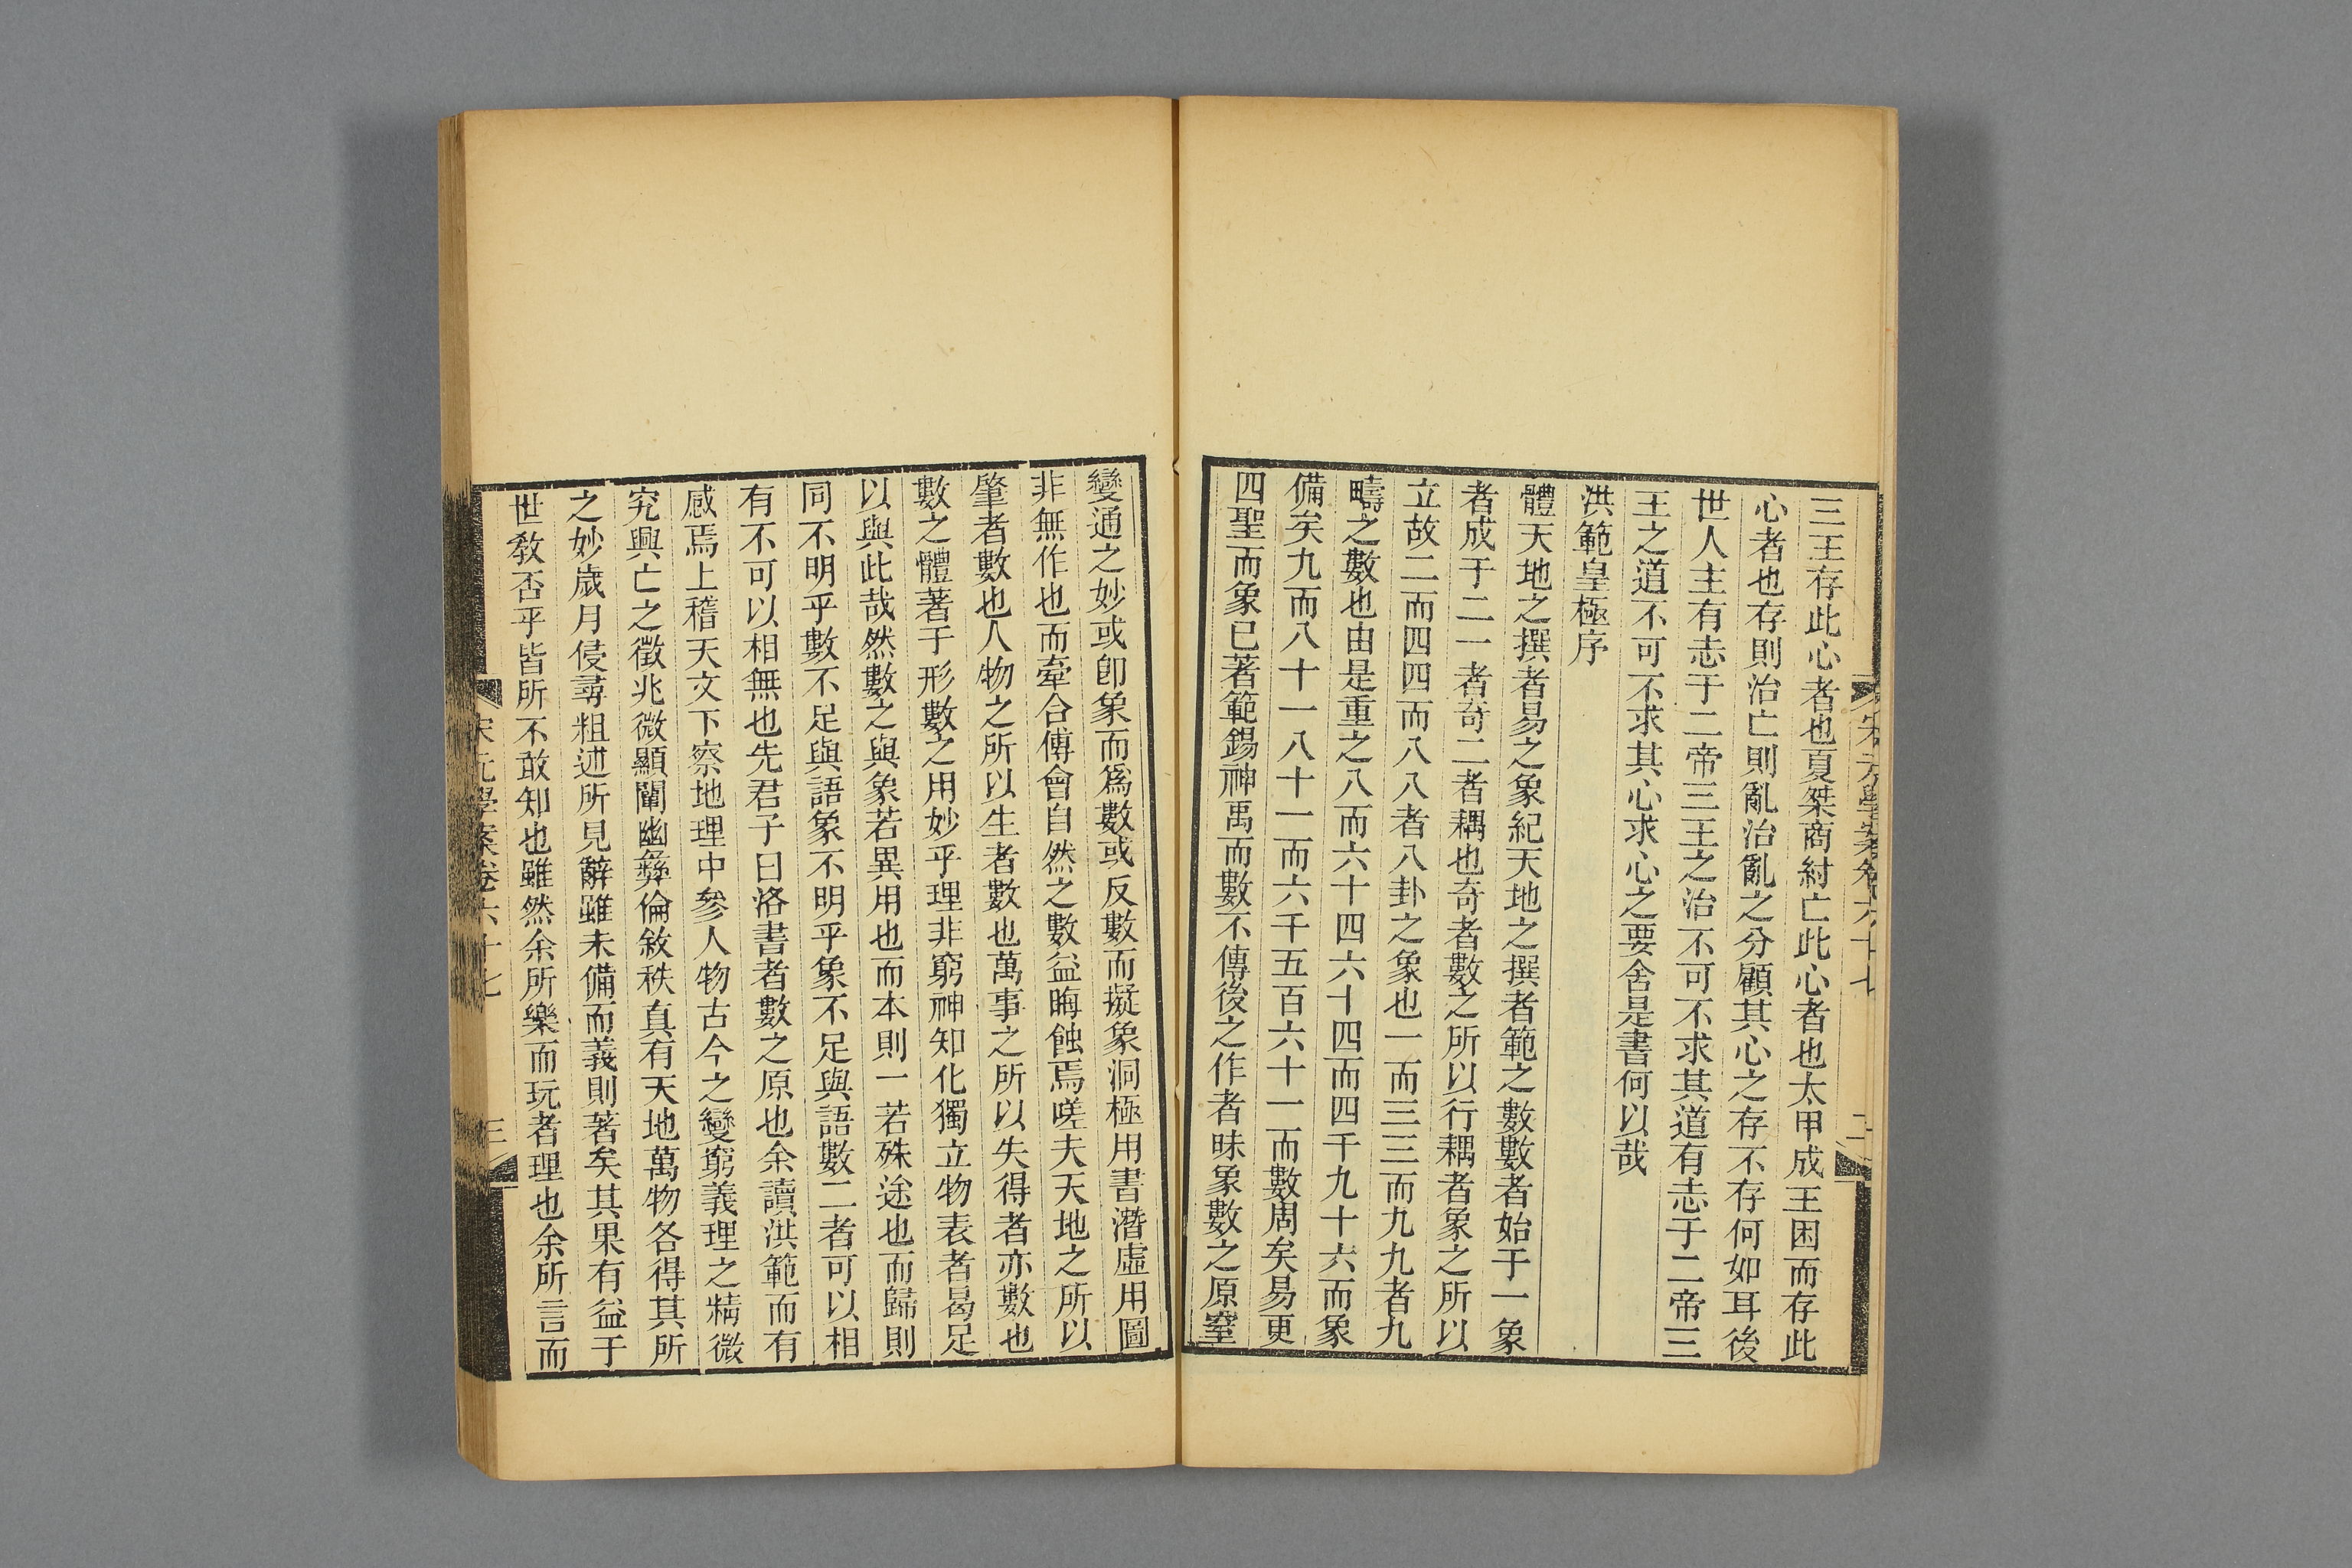 三王存此心者也夏桀商紂亡此心者也太甲成王困而存此
心者也存則治亡則亂治亂之分顧其心之存不存何如耳後
世人主有志于二帝三王之治不可不求其道有志于二帝三
王之道不可不求其心求心之要舍是書何以哉
洪範皇極序
體天地之撰者易之象紀天地之撰者範之數數者始于一象
者成于二一者奇二者耦也奇者數之所以行耦者象之所以
立故二而四四而八八者八卦之象也一而三三而九九者九
疇之數也由是重之八而六十四六十四而四千九十六而象
備矣九而八十一八十一而六千五百六十一而數周矣易更
四聖而象已著範錫神禹而數不傳後之作者昧象數之原窒
變通之妙或卽象而爲數或反數而擬象洞極用書潛虛用圖
非無作也而牽合傅會自然之數益晦蝕焉嗟夫天地之所以
肇者數也人物之所以生者數也萬事之所以失得者亦數也
數之體著于形數之用妙乎理非窮神知化獨立物表者曷足
以與此哉然數之與象若異用也而本則一若殊途也而歸則
同不明乎數不足與語象不明乎象不足與語數二者可以相
有不可以相無也先君子曰洛書者數之原也余讀洪範而有
感焉上稽天文下察地理中參人物古今之變窮義理之精微
究興亡之徵兆微顯闡幽彝倫敘秩真有天地萬物各得其所
之妙歲月侵尋粗述所見辭雖未備而義則著矣其果有益于
世敎否乎皆所不敢知也雖然余所樂而玩者理也余所言而
宋元學案卷六十七
三